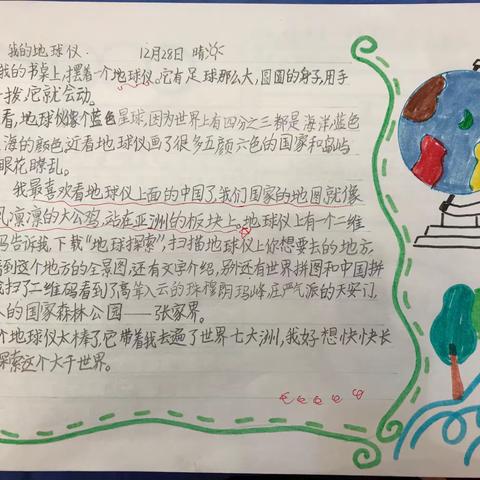 我的地球仪. 12月28日 晴
我的书桌上,摆着一个地球仪。它有足球那么大,圆圆的身子,用手
一拨,它就会动。
看,地球仪像个蓝色星球,因为世界上有四分之三都是海洋,蓝色
海的颜色,近看地球仪画了很多五颜六色的国家和岛屿
眼花瞭乱。
我最喜欢看地球仪上面的中国了,我们国家的地图就像
凛凛的大公鸡,站在亚洲的板块上。地球仪上有一个二维
码告诉我,下载“地球探索”,扫描地球仪上你想要去的地方,
看到这个地方的全景图,还有文字介绍,另外还有世界拼图和中国拼
我扫了二维码看到了高耸入云的珠穆朗玛峰,庄严气派的天安门,
人的国家森林公园——张家界。
个地球仪太棒了,它带着我去遍了世界七大洲,我好想快快长
探索这个大千世界。